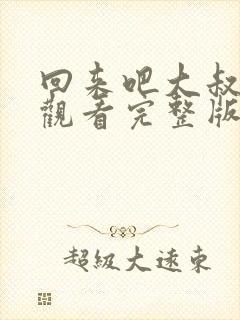 回来吧大叔
觀看完整版
超級大遠東